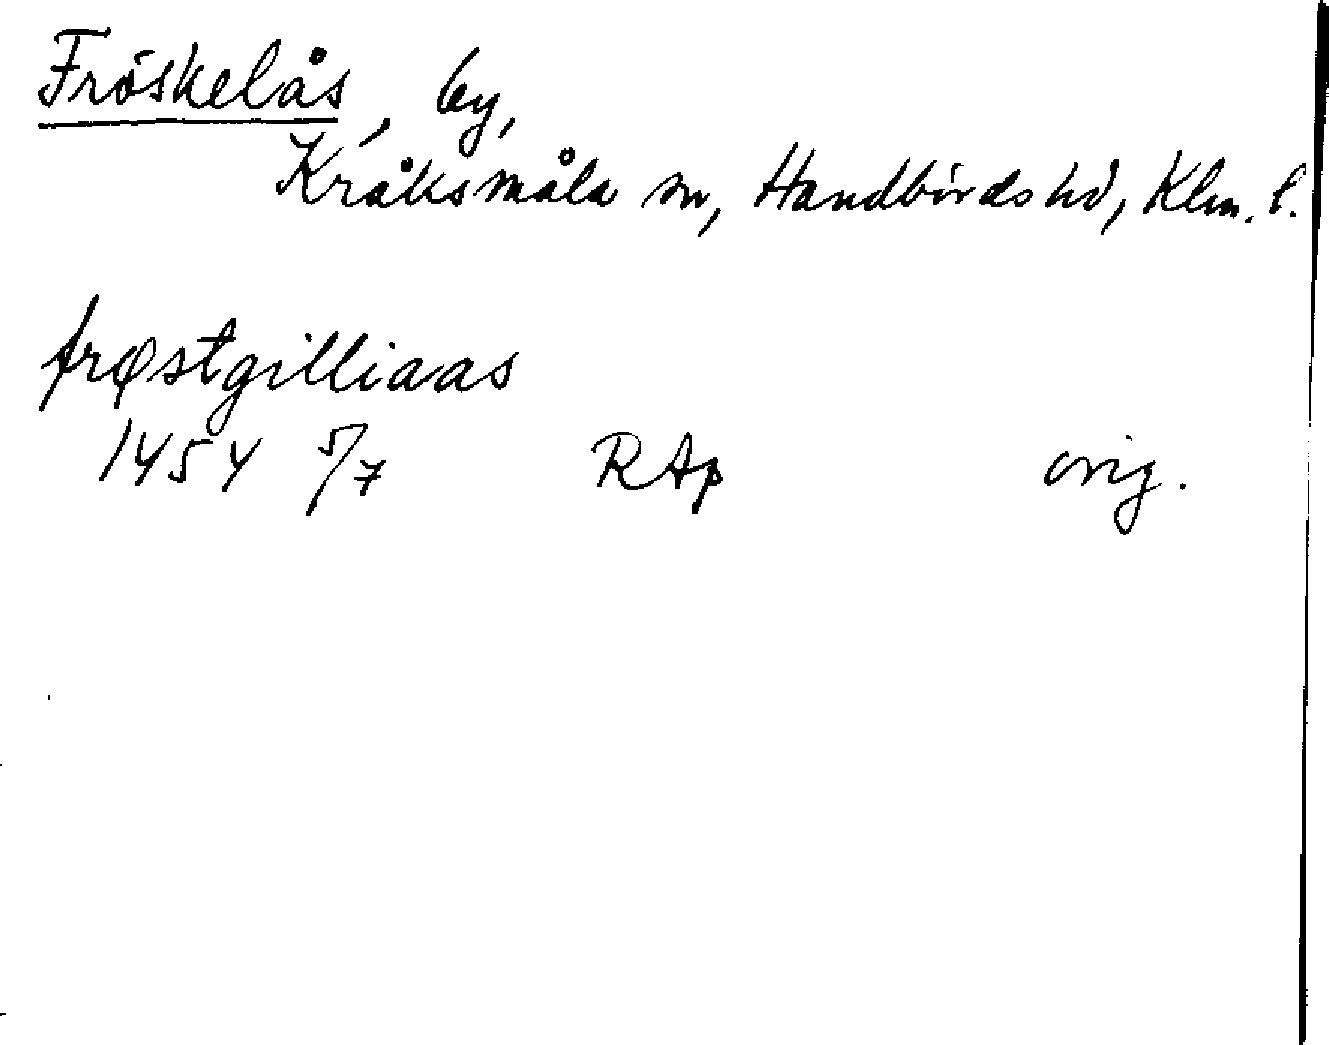 Fröskelås, by,
Kråksmåla sn, Handbörds hd, Klm. l.
frøstgilliaas
1454 5/7 RAp orig.